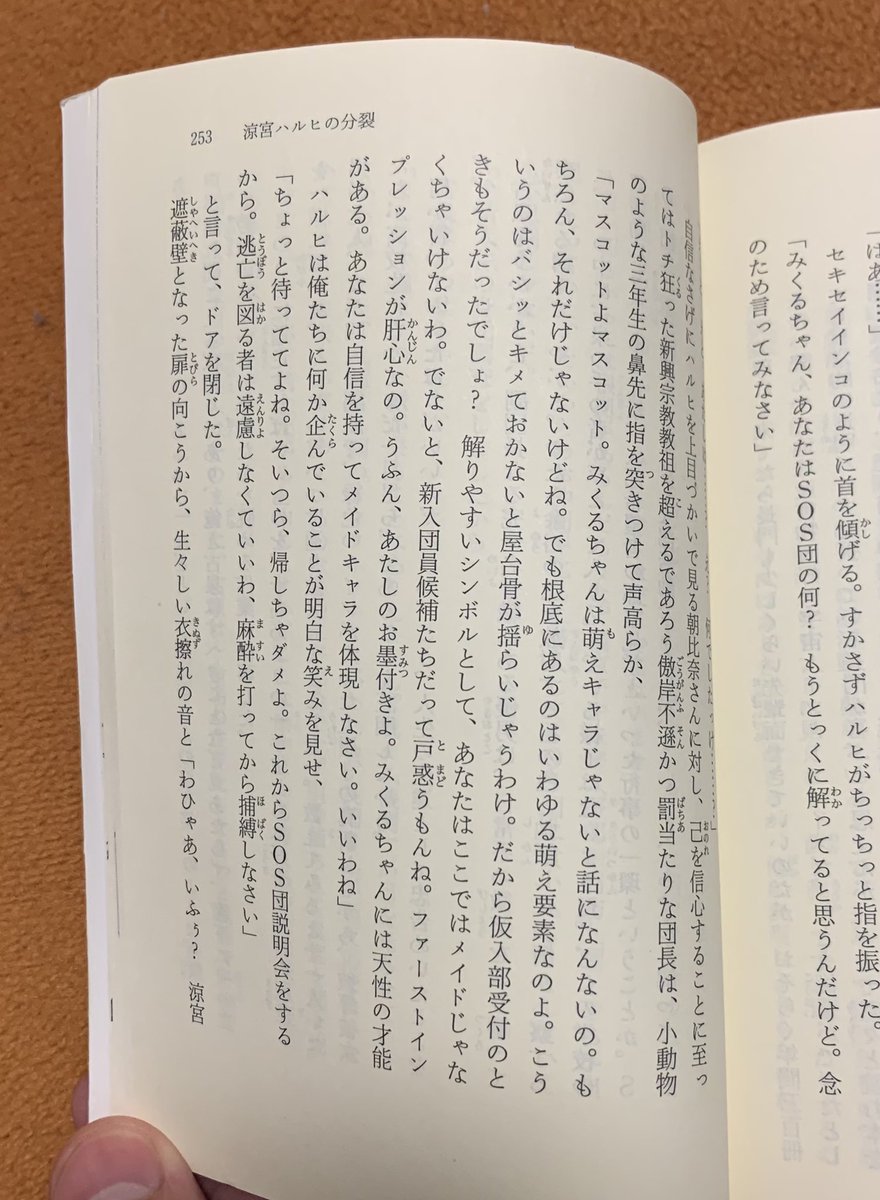 「はあ……」
セキセイインコのように首を傾げる。すかさずハルヒがちっちっと指を振った。
「みくるちゃん、あなたはSOS団の何? もうとっくに解ってると思うんだけど。念
のため言ってみなさい」
253 涼宮ハルヒの分裂
自信なさげにハルヒを上目づかいで見る朝比奈さんに対し、己を信心することに至っ
てはトチ狂った新興宗教教祖を超えるであろう傲岸不遜かつ罰当たりな団長は、小動物
のような三年生の鼻先に指を突きつけて声高らか、
「マスコットよマスコット。みくるちゃんは萌えキャラじゃないと話になんないの。も
ちろん、それだけじゃないけどね。でも根底にあるのはいわゆる萌え要素なのよ。こう
いうのはバシッとキメておかないと屋台骨が揺らいじゃうわけ。だから仮入部受付のと
きもそうだったでしょ? 解りやすいシンボルとして、あなたはここではメイドじゃな
くちゃいけないわ。でないと、新入団員候補たちだって戸惑うもんね。ファーストイン
プレッションが肝心なの。うふん、あたしのお墨付きよ。みくるちゃんには天性の才能
がある。あなたは自信を持ってメイドキャラを体現しなさい。いいわね」
ハルヒは俺たちに何か企んでいることが明白な笑みを見せ、
「ちょっと待っててよね。そいつら、帰しちゃダメよ。これからSOS団説明会をする
から。逃亡を図る者は遠慮しなくていいわ、麻酔を打ってから捕縛しなさい」
と言って、ドアを閉じた。
遮蔽壁となった扉の向こうから、生々しい衣擦れの音と「わひゃあ、いふぅ? 涼宮